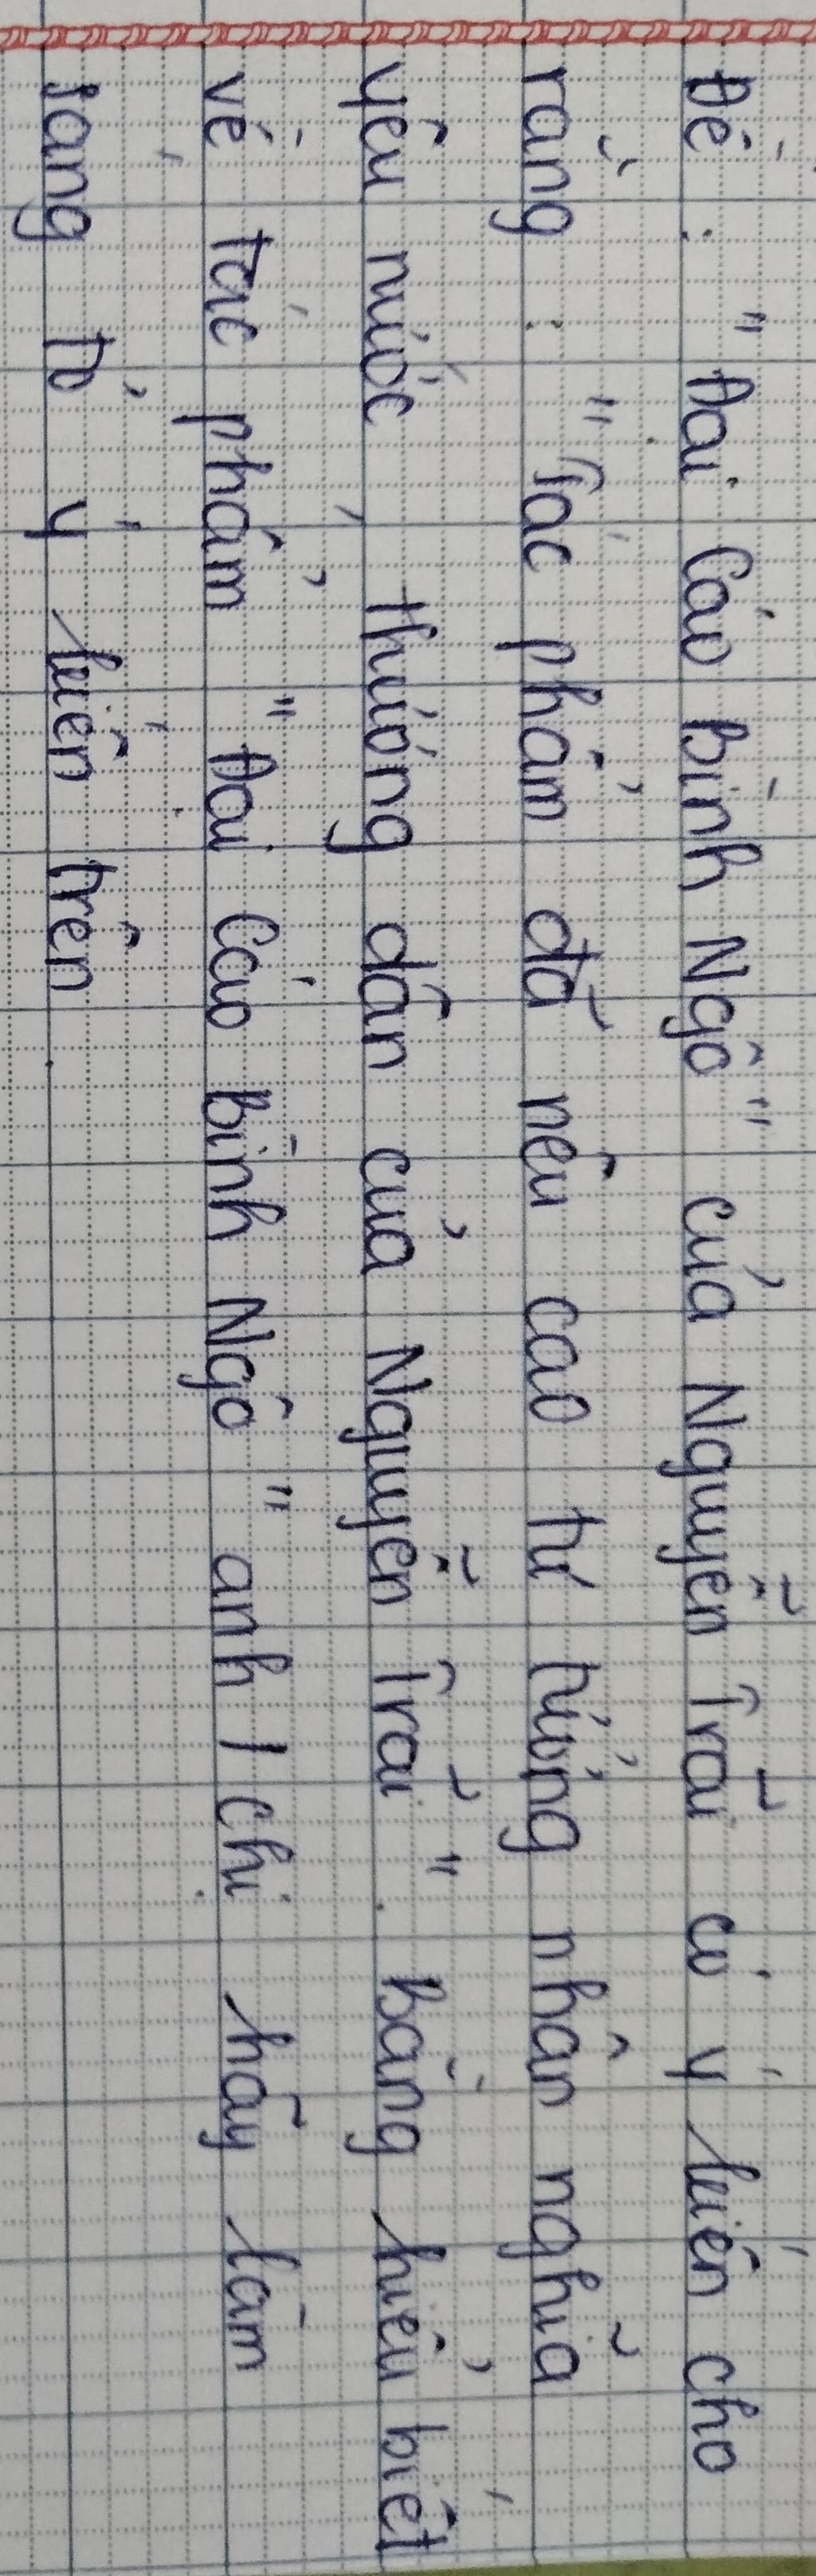 Đề : "Đại Cáo Bình Ngô" của Nguyễn Trãi có ý kiến cho
rằng : "Tác phẩm đã nêu cao tư tưởng nhân nghĩa
yêu nước , thương dân của Nguyễn Trãi". Bằng hiểu biết
về tác phẩm "Đại Cáo Bình Ngô" anh / chị hãy làm
sáng tỏ ý kiến trên .